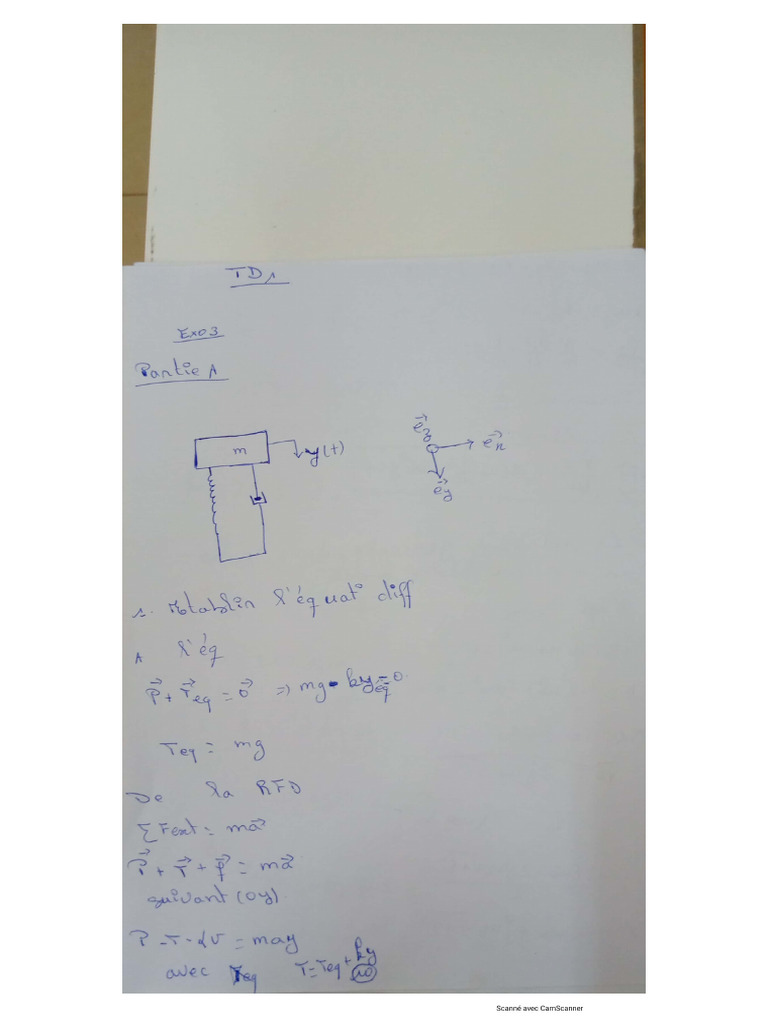 TD1
Exo3
Partie A
m
y(t)
e⃗z
e⃗x
e⃗y
1. Etablir l'équati diff
A l'éq
P⃗ + T⃗eq = 0⃗ => mg - kyéq = 0
Teq = mg
De la RFD
ΣFext = ma⃗
P⃗ + T⃗ + f⃗ = ma⃗
suivant (oy)
P - T - αv = may
avec T = Teq + ky
Scanné avec CamScanner